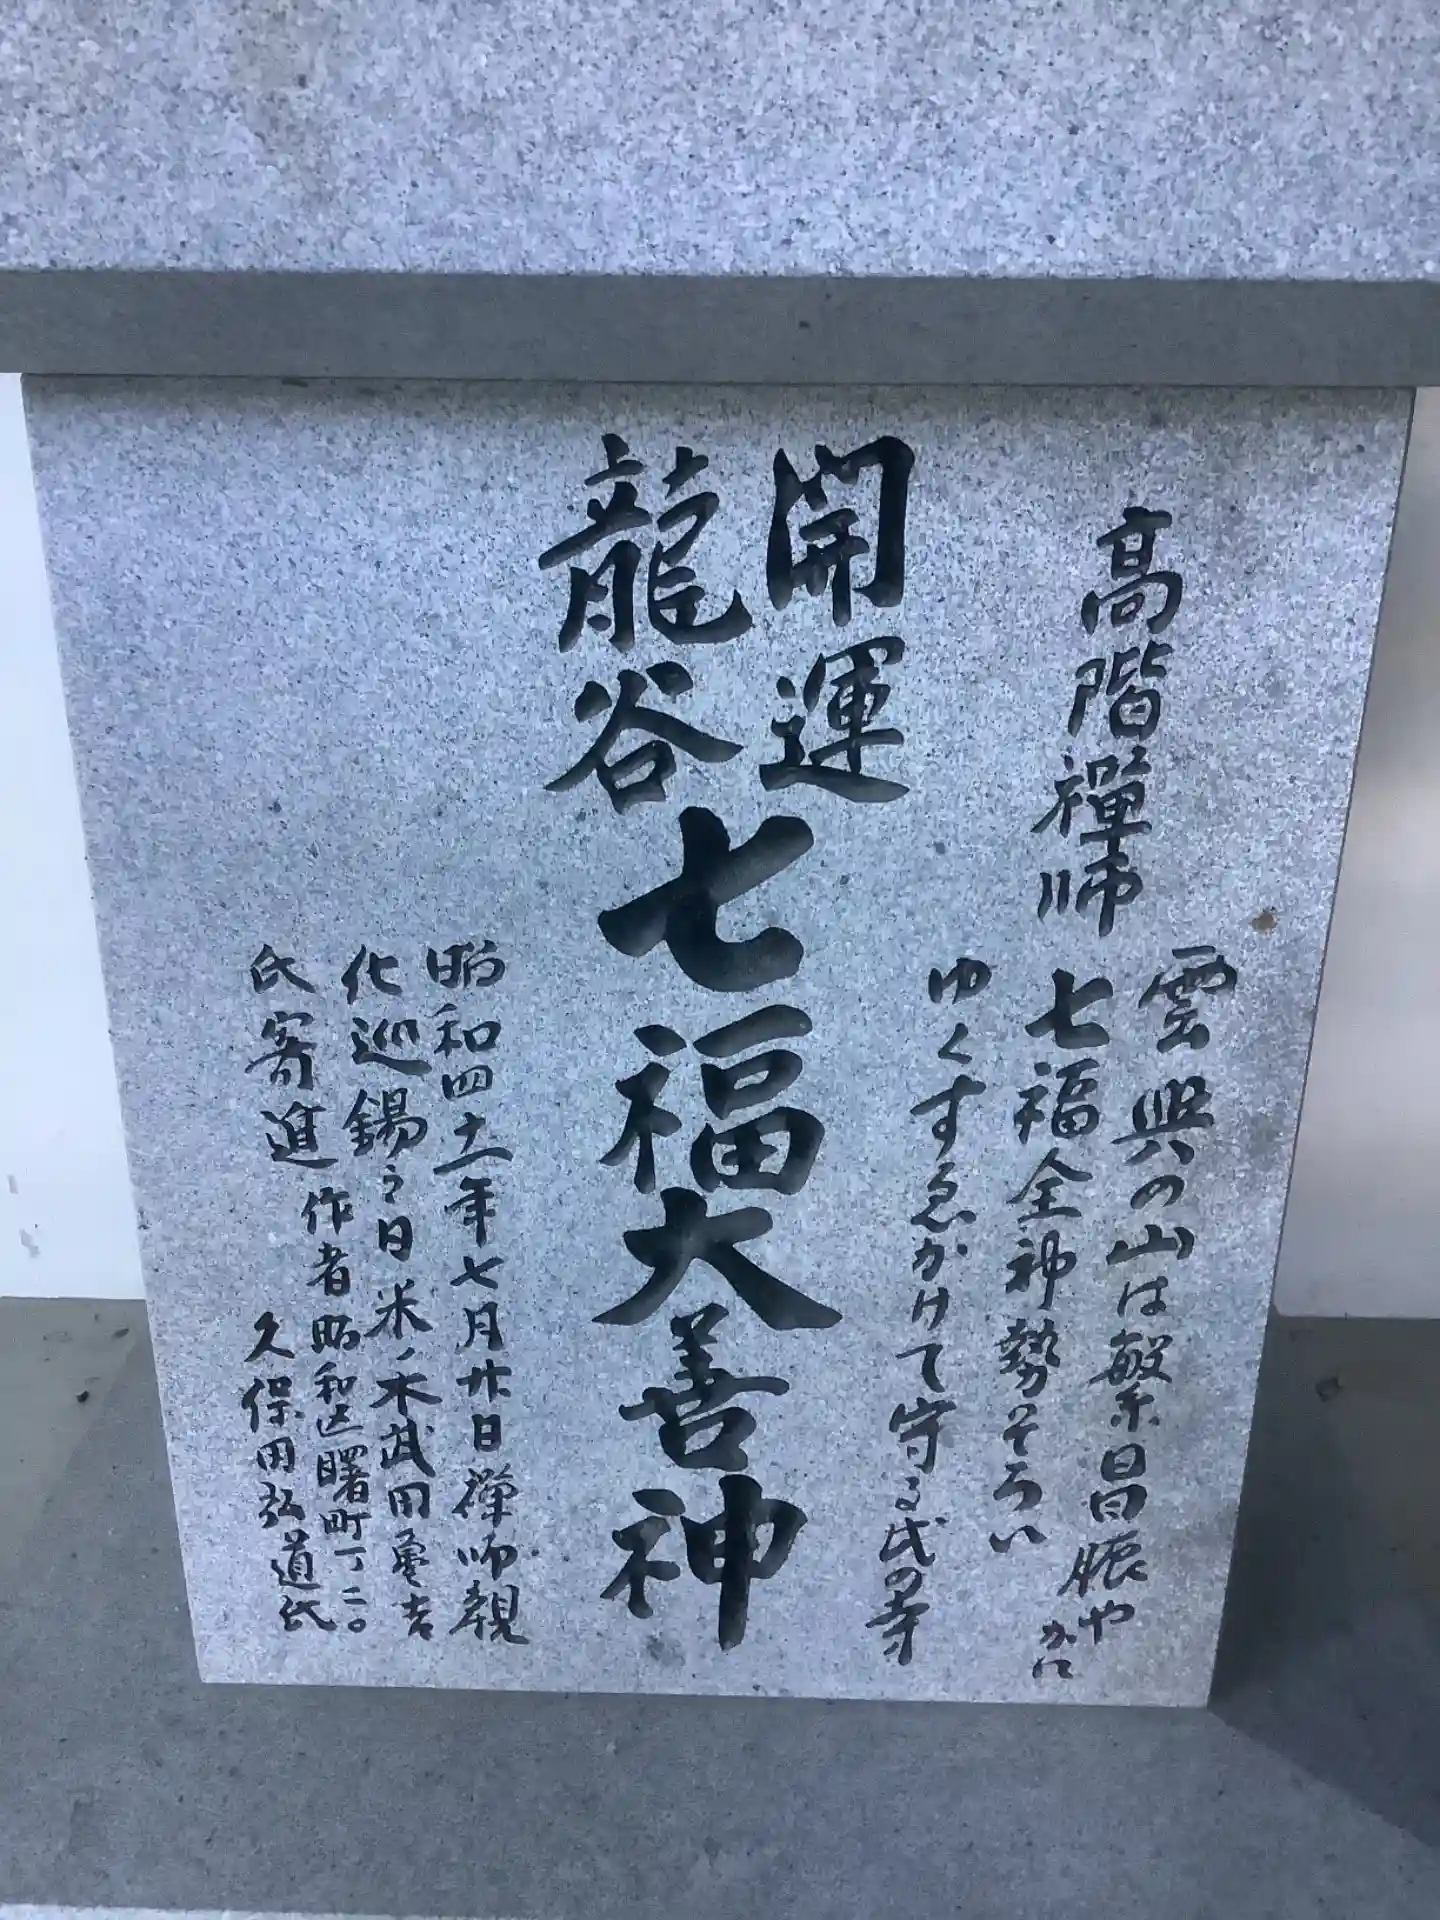 高階禪師
雲興の山は繁昌賑やかに
七福全神勢ぞろい
ゆくすゑかけて守る氏の寺
開運
龍谷
七福大善神
昭和四十二年七月廿日禅師親
化巡錫之日米ノ木武田 吉
氏寄進 作者昭和区曙町一ノ二〇
久保田弘道氏